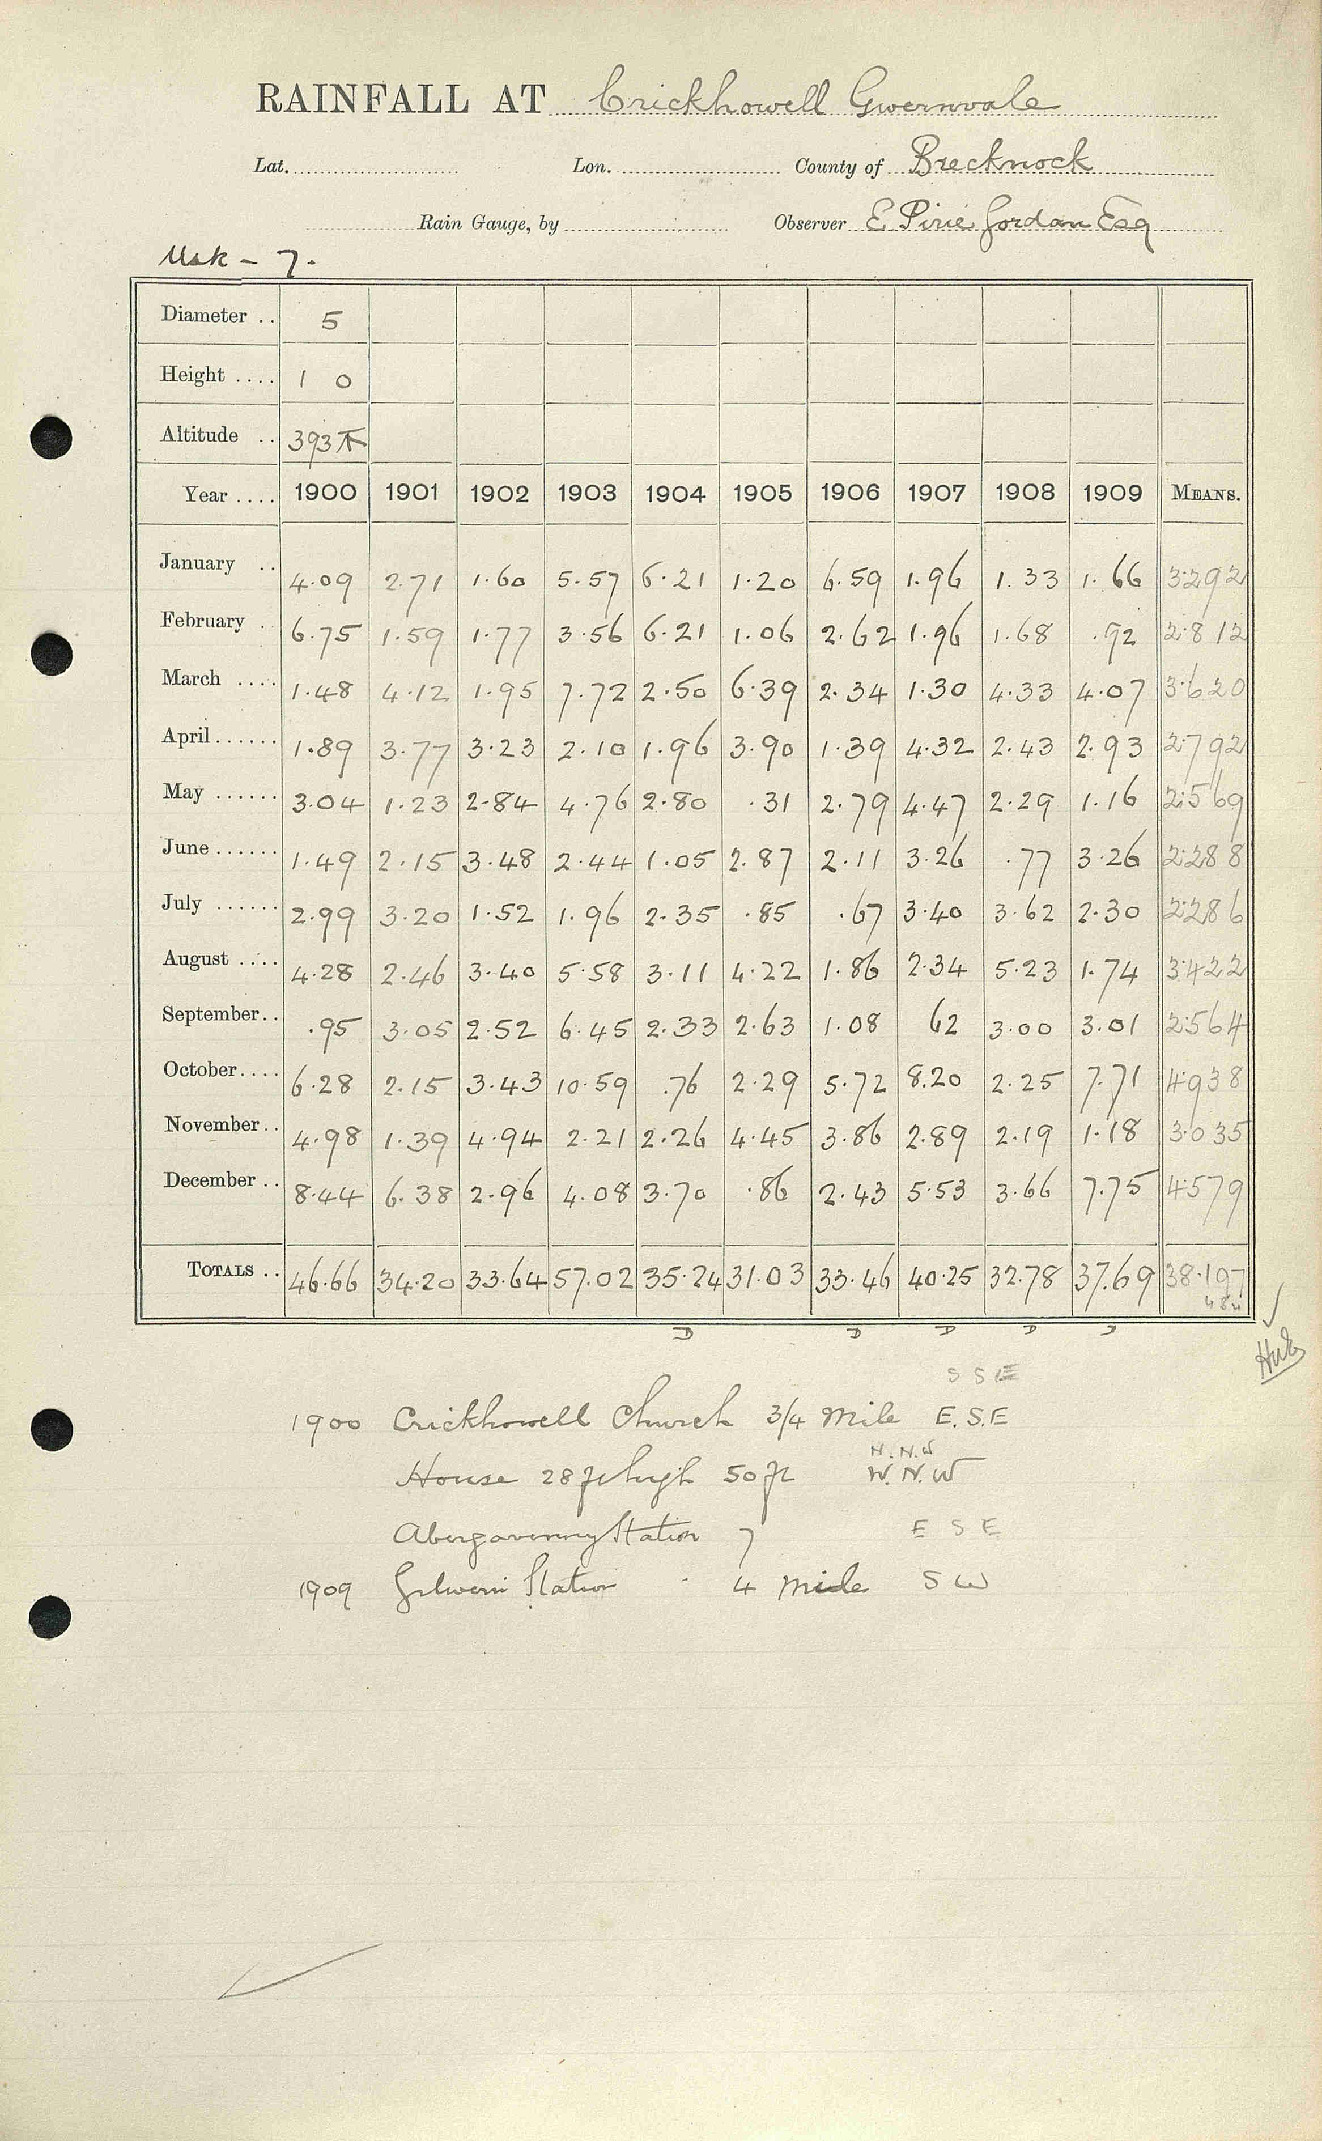 RAINFALL AT Crickhowell Gwernvale
Lat. Lon. County of Brecknock
Rain Gauge, by Observer E Pirie Gordon Esq
Usk - 7.
Diameter .. 5
Height .... 1 0
Altitude .. 393
Year .... 1900 1901 1902 1903 1904 1905 1906 1907 1908 1909 MEANS.
January .. 4.09 2.71 1.60 5.57 6.21 1.20 6.59 1.96 1.33 1.66 3.292
February . 6.75 1.59 1.77 3.56 6.21 1.06 2.62 1.96 1.68 .92 2.812
March .... 1.48 4.12 1.95 7.72 2.50 6.39 2.34 1.30 4.33 4.07 3.620
April...... 1.89 3.77 3.23 2.10 1.96 3.90 1.39 4.32 2.43 2.93 2.792
May ...... 3.04 1.23 2.84 4.76 2.80 .31 2.79 4.47 2.29 1.16 2.569
June...... 1.49 2.15 3.48 2.44 1.05 2.87 2.11 3.26 .77 3.26 2.288
July ...... 2.99 3.20 1.52 1.96 2.35 .85 .67 3.40 3.62 2.30 2.286
August .... 4.28 2.46 3.40 5.58 3.11 4.22 1.86 2.34 5.23 1.74 3.422
September.. .95 3.05 2.52 6.45 2.33 2.63 1.08 62 3.00 3.01 2.564
October.... 6.28 2.15 3.43 10.59 .76 2.29 5.72 8.20 2.25 7.71 4.938
November.. 4.98 1.39 4.94 2.21 2.26 4.45 3.86 2.89 2.19 1.18 3.035
December .. 8.44 6.38 2.96 4.08 3.70 .86 2.43 5.53 3.66 7.75 4.579
TOTALS .. 46.66 34.20 33.64 57.02 35.24 31.03 33.46 40.25 32.78 37.69 38.197
D D D D D
S S E
1900 Crickhowell Church 3/4 Mile E.S.E
N.N.W
House 28 ft high 50 ft W.N.W
Abergavenny Station 7 E S E
1909 Gilwern Station 4 mile S W